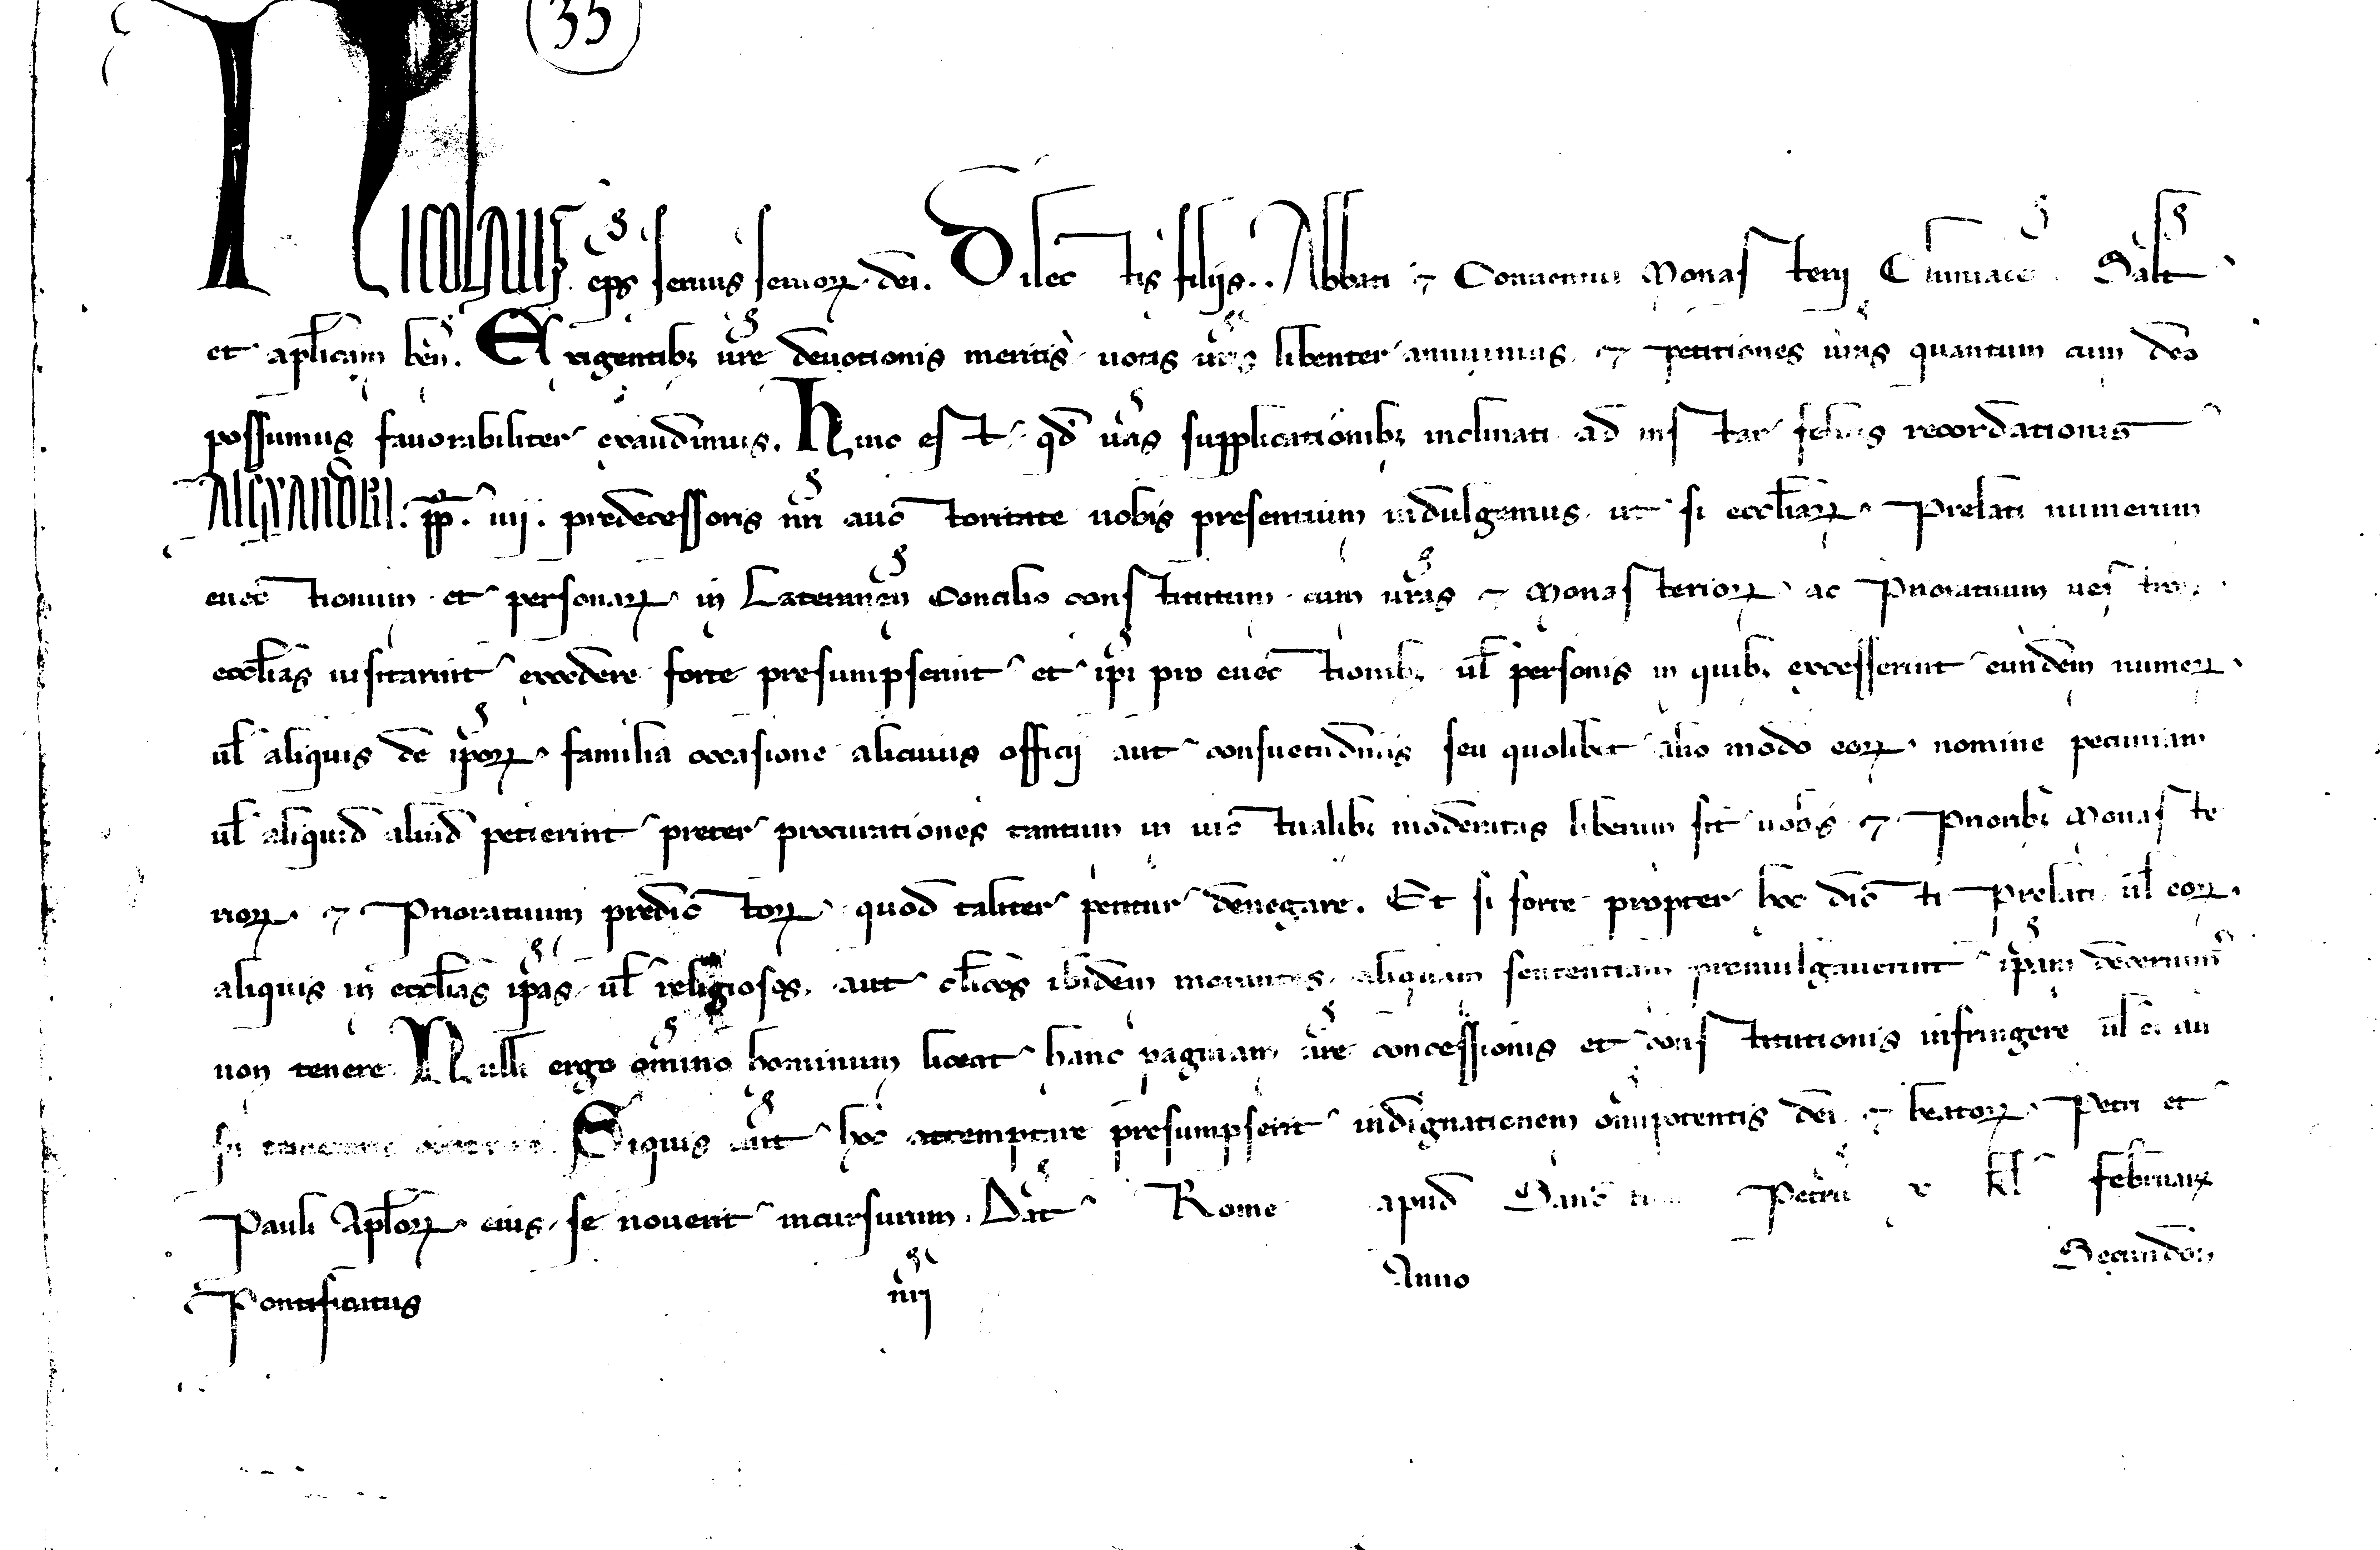 35
Nicolaus eps seruus seruoꝝ dei. Dilectis filijs.. Abbati ⁊ Conuentui Monasterij Cluniacen̄ Salt̄
et aplicam ben̄. Exigentibꝫ ur̄e deuotionis meritis uotis ur̄is libenter annuimus ⁊ petitiones ur̄as quantum cum deo
possumus fauorabiliter exaudimus. Hinc est qd̄ ur̄is supplicationibꝫ inclinati ad instar felicis recordationis
Alexandri. pp̄. iiij. predecessoris nr̄i auctoritate uobis presentium indulgemus ut si eccl̄iaꝝ Prelati numerum
euectionum et personaꝝ in Lateranen̄ Concilio constitutum cum ur̄as ⁊ Monasterioꝝ ac Prioratuum uestroꝝ
eccl̄ias uisitarint excedere forte presumpserint et ip̄i pro euectionibꝫ ul̄ personis in quibꝫ excesserint eundem numeꝝ
ul̄ aliquis de ip̄oꝝ familia occasione alicuius officij aut consuetudinis seu quolibet alio modo eoꝝ nomine pecuniam
ul̄ aliquid aliud petierint preter procurationes tantum in uictualibꝫ moderatas liberum sit uobis ⁊ Prioribꝫ Monaste
rioꝝ ⁊ Prioratuum predictoꝝ quod taliter petitur denegare. Et si forte propter hoc dicti Prelati ul̄ eoꝝ
aliquis in eccl̄ias ip̄as ul̄ religiosos aut cl̄icos ibidem morantes aliquam sententiam promulgauerint ip̄am decernim̄
non tenere Nulli ergo om̄ino hominum liceat hanc paginam nr̄e concessionis et constitutionis infringere ul̄ ei au
su temerario contraire. Siquis aut̄ hoc attemptare presumpserit indignationem om̄ipotentis dei ⁊ beatoꝝ Petri et
Pauli Apl̄oꝝ eius se nouerit incursurum. Dat̄ Rome apud Sanctum Petrū kl̄ februarꝝ
Pontificatus nr̄i Anno Secundo